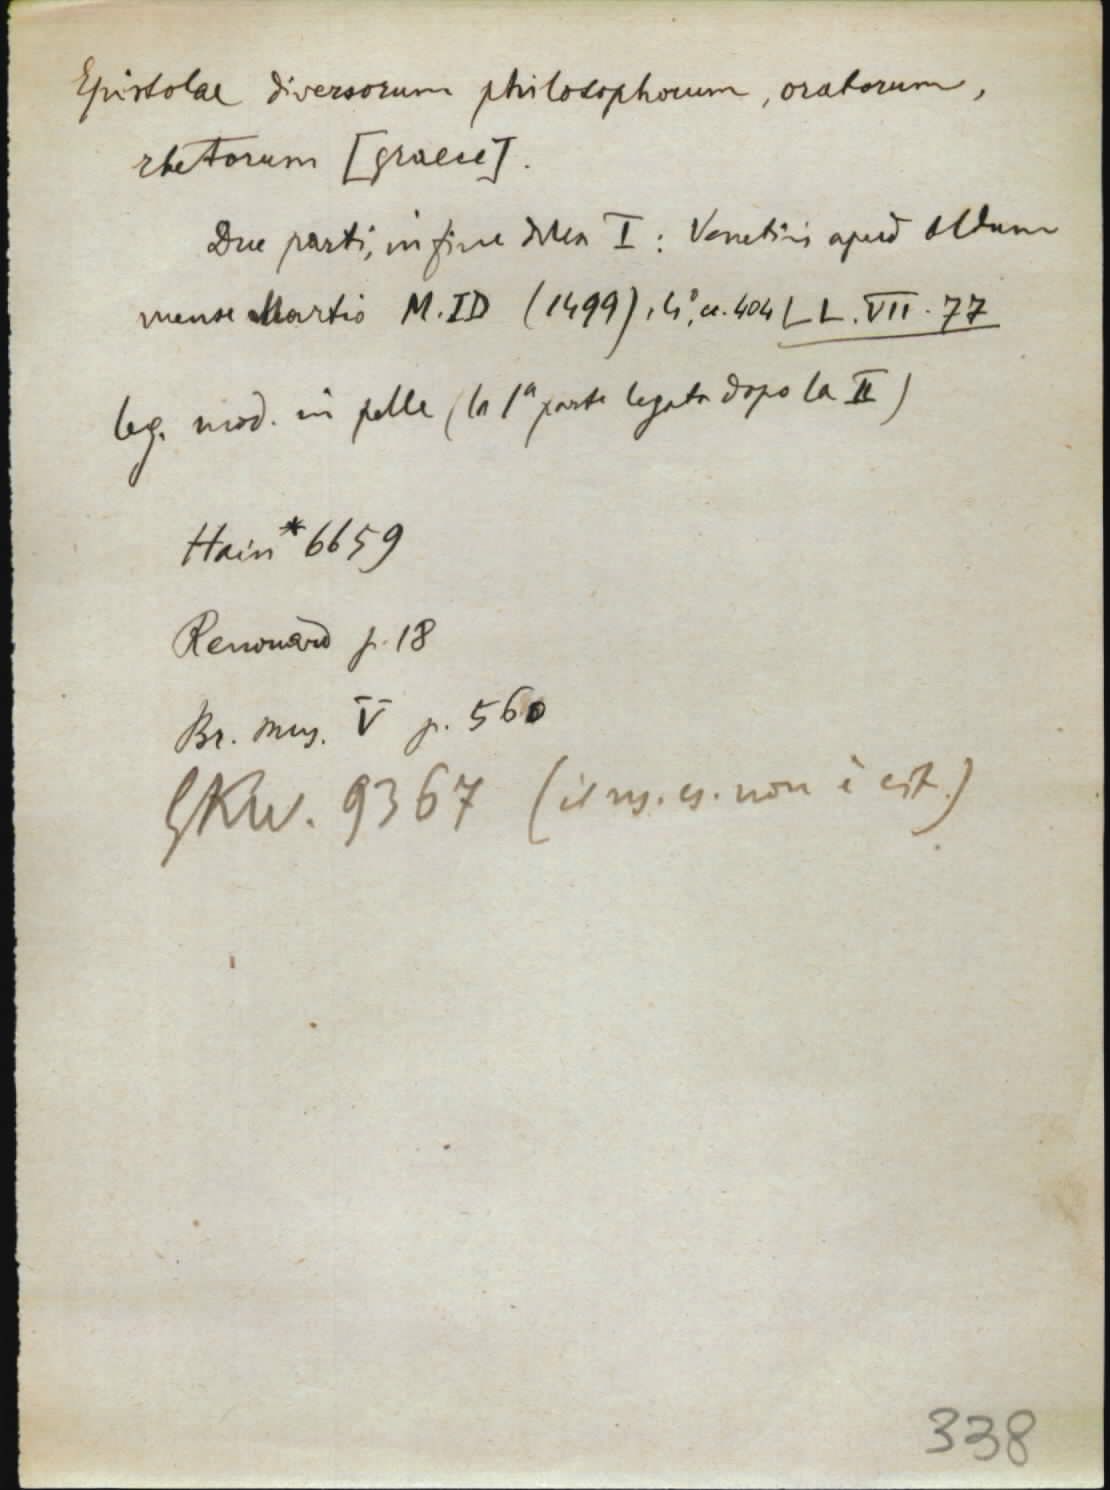 Epistolae diversorum philosophorum, oratorum,
rhetorum [graece].
Due parti, in fine della I : Venetiis apud Aldum
mense Martio M.ID (1499), 4°, cc. 404 L L. VII. 77
leg. mod. in pelle (la 1ª parte legata dopo la II)
Hain * 6659
Renouard p. 18
Br. Mus. V p. 560
GKW. 9367 (il ns. es. non è cit.)
338